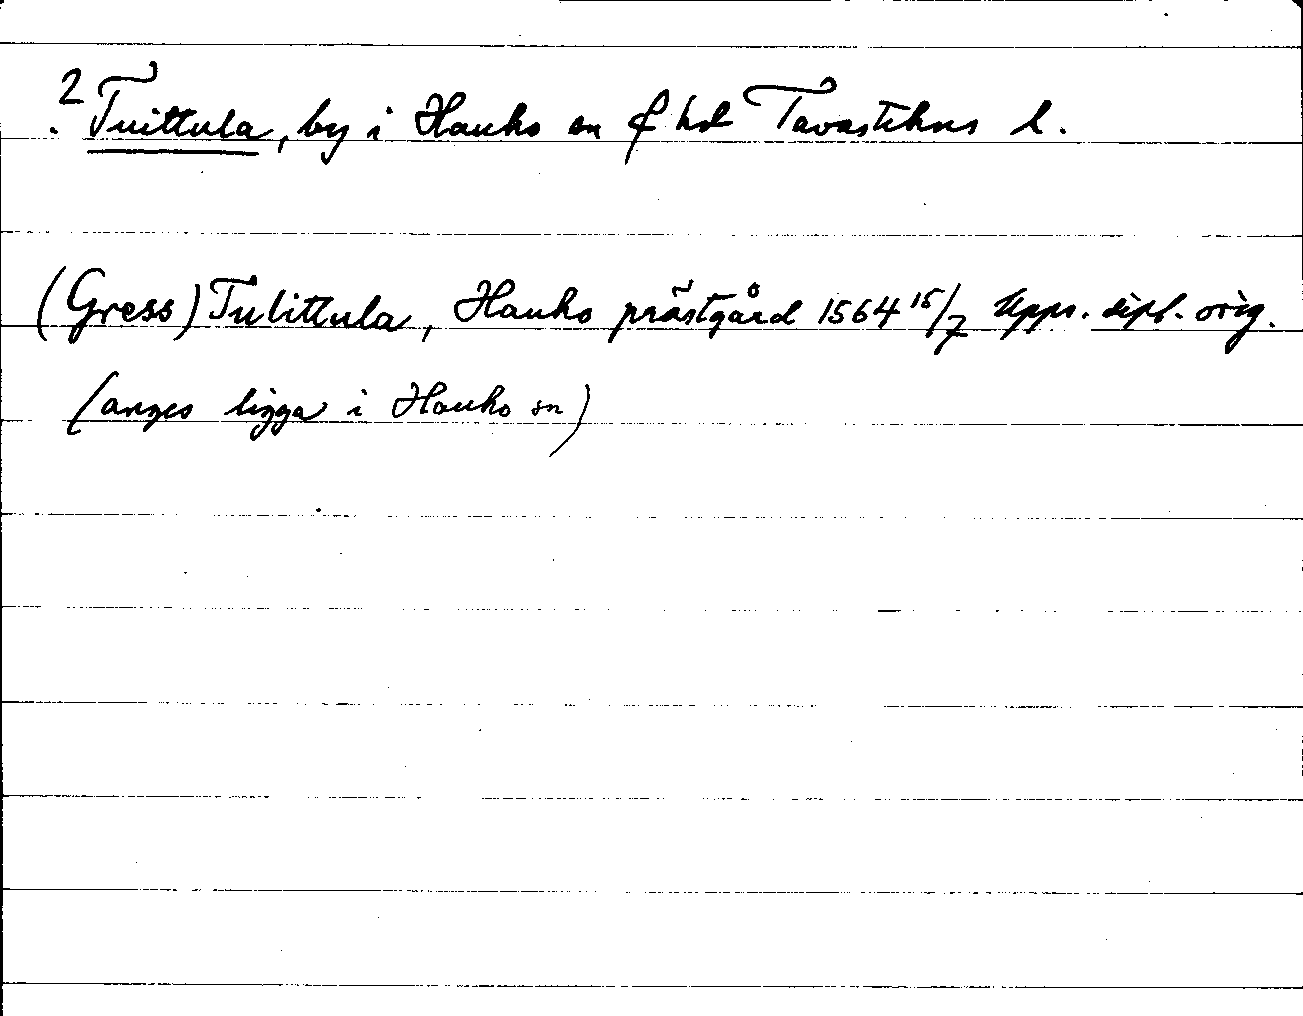 ? Tuittula, by i Hauho sn f hd Tavastehus l.
(Gress) Tulittula, Hauho prästgård 1564 15/7 Upps. dipl. orig.
(anges ligga i Hauho sn)